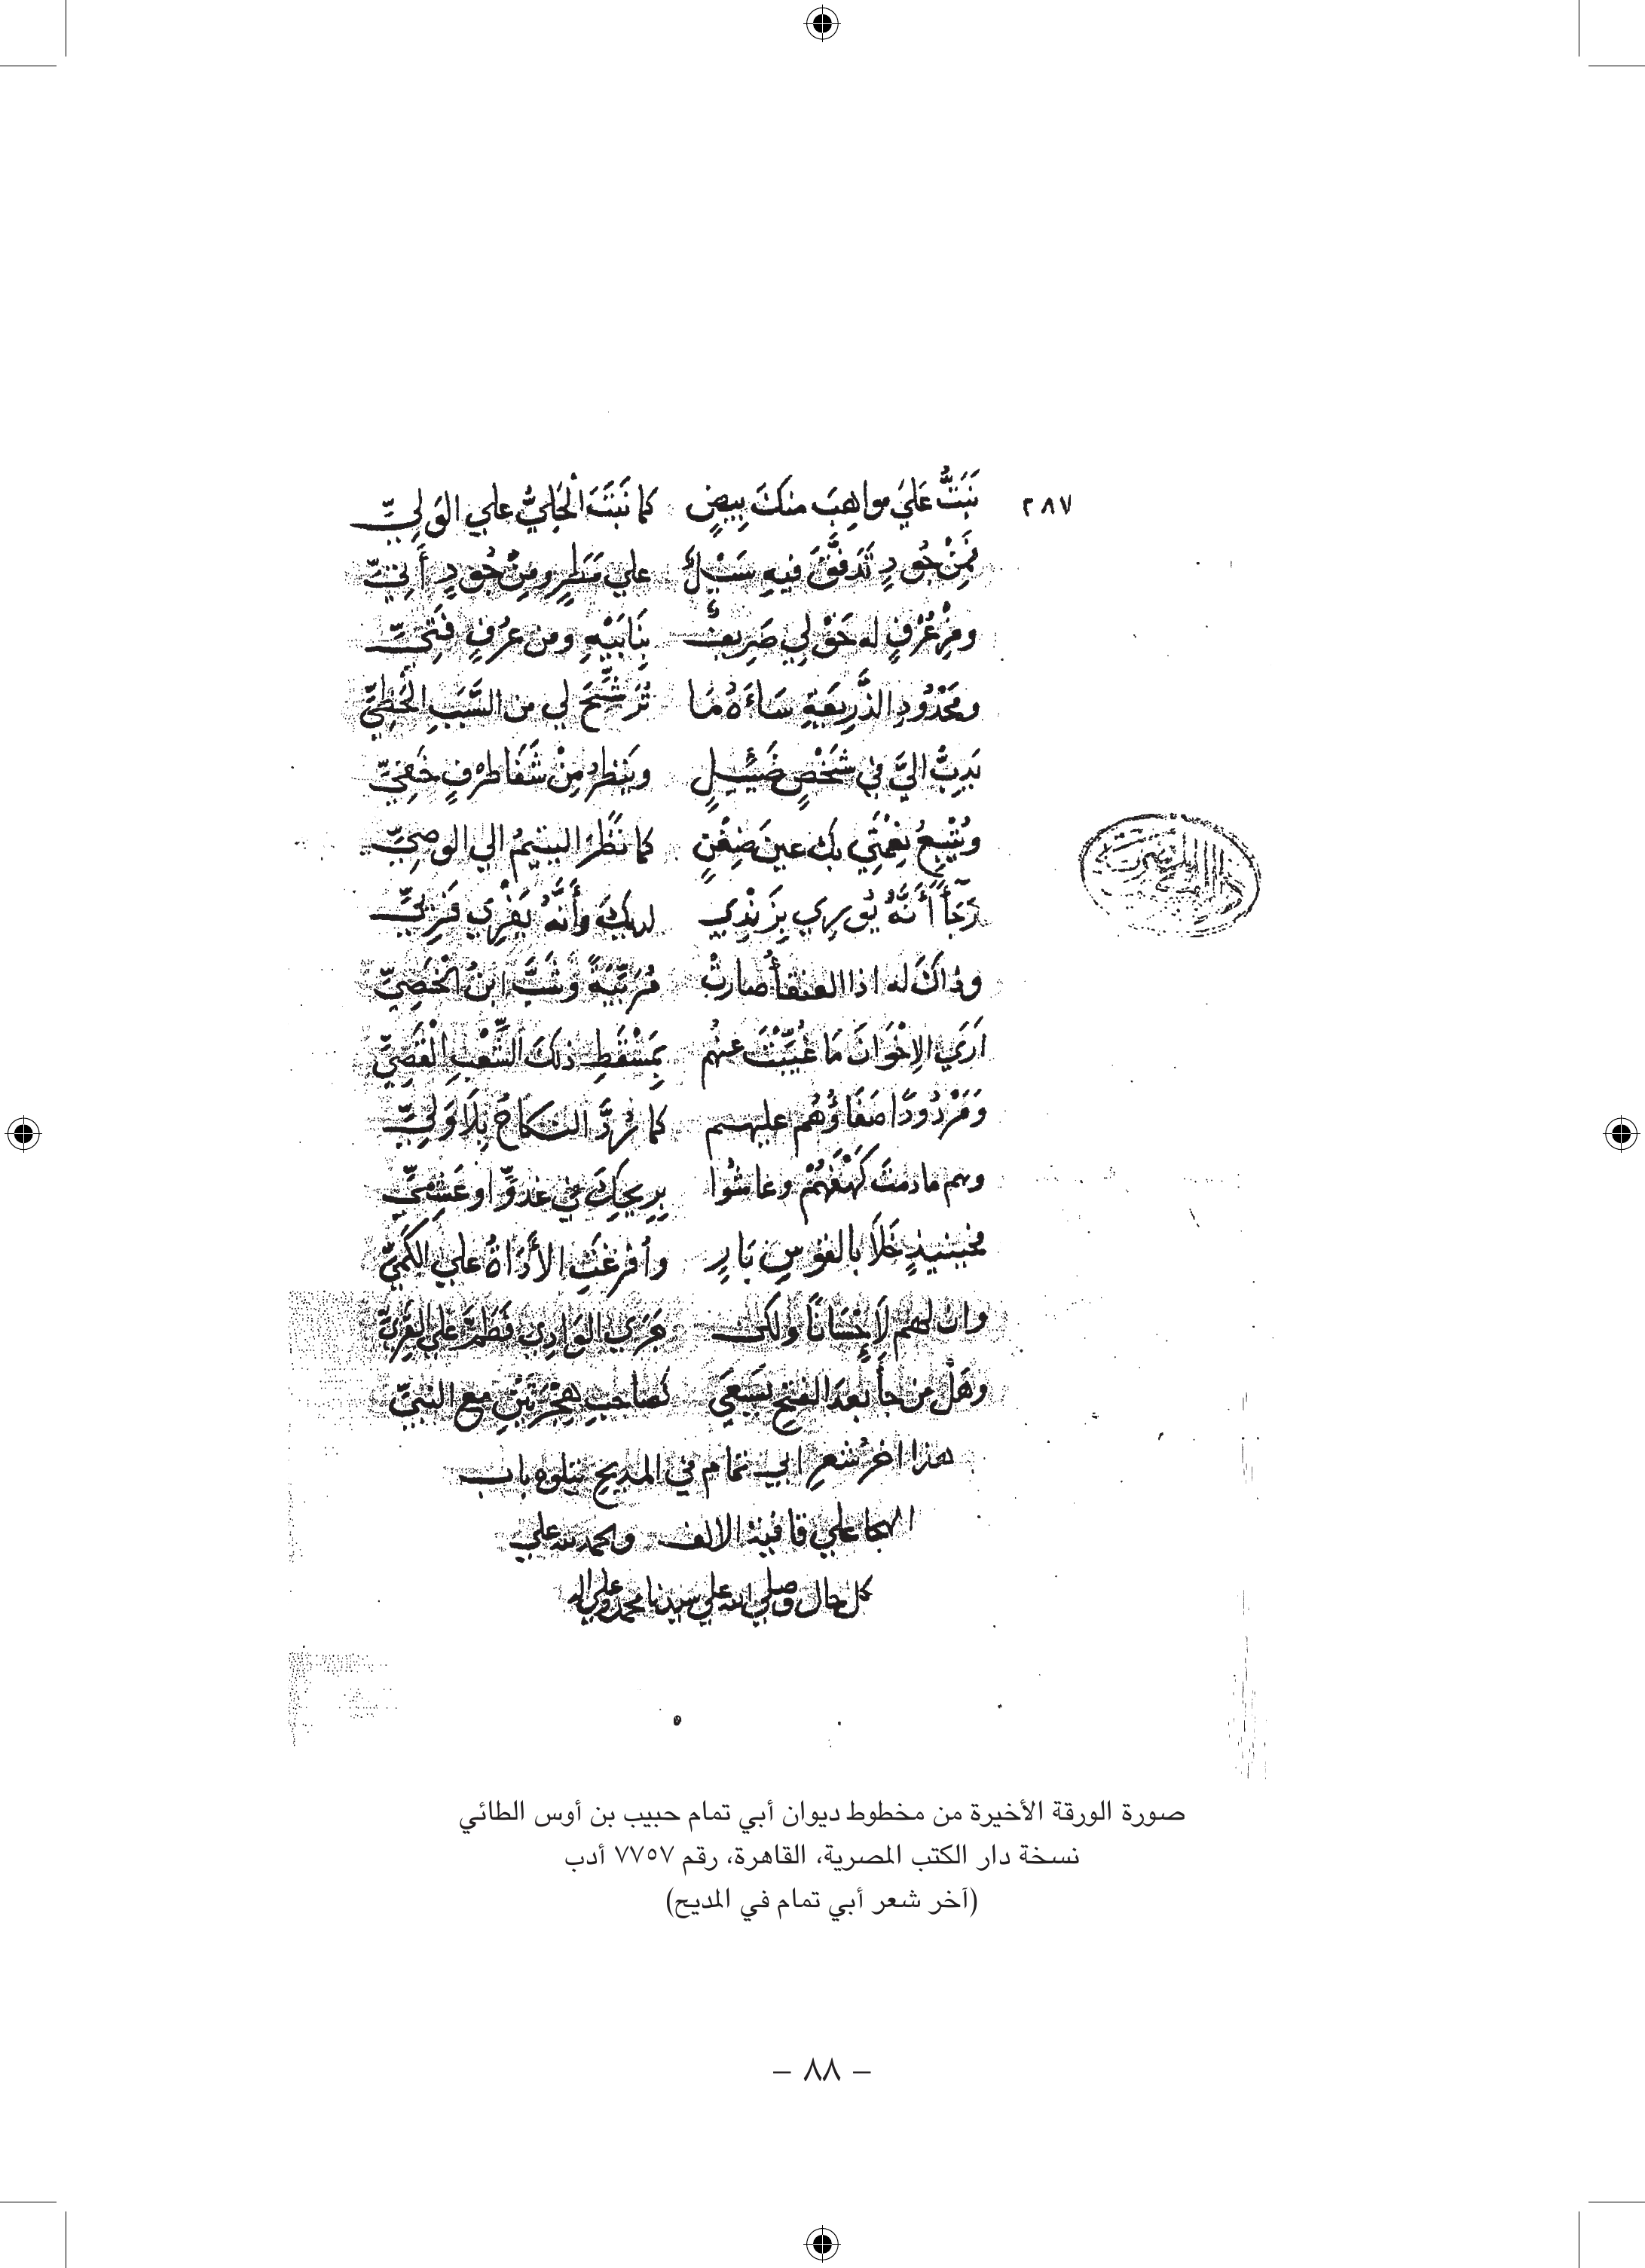 ٢٨٧
نَبَتَّ عَلَيَّ مواهِبَ منكَ بِيضٍ كما نَبَتَ الْحَلِيُّ علي الوَلِيِّ
فَمِنْ جُودٍ تَدَفَّقَ فيهِ سَيْلٌ علي مَطَرٍ ومِنْ جُودٍ أَتِيِّ
ومِنْ عُرْفٍ له حَوْلِي صَرِيفٌ بِنَابَيْهِ ومن عُرْفٍ فَتِيِّ
ومَحْدُودِ الذَّرِيعَةِ سَاءَهُ مَا تُرَشِّحُ لي من السَّبَبِ الْحَظِيِّ
يَدِبُّ اليَّ في شَخْصٍ ضَئيلٍ وينظر مِنْ شَفَا طَرْفٍ خَفِيِّ
ويُتْبِعُ نِعْمَتِي بك عين ضِغْنٍ كما نَظَرَ اليتيمُ الي الوصِيِّ
رَجَآءً أَنَّهُ يُورِي بِزَنْدِي لديكَ وأَنَّهُ يَفْرِي فَرِيِّ
وذاكَ له اذا العنقأُ صارتْ مُرَبِّيَةً وَشَبَّ ابنُ الْخَصِيِّ
اَرَي الاِخْوَانَ مَا غُيِّبْتَ عنهُم بِمَسْقَطِ ذلكَ الشِّعْبِ الْقَصِيِّ
وَمَرْدُودًا صَفَاؤُهُم عليهم كما رُدَّ النكاحُ بِلَا وَلِيِّ
وهم مادمتَ كَهْفَهُمْ وعاشُوا بِرِيحِكَ في غدوٍّ او عَشِيِّ
فحينئذٍ خَلَا بالقوسِ بَارٍ واُفْرِغَتِ الأَدَاةُ علي الكَمِيِّ
وان لهم لَإِحْسَانًا ولكن جَرَي الوَادِي فَطَمَّ علي القَرِيِّ
وهَلْ من جأَ بعدَ الفتحِ يَسْعَي كصاحبِ هِجْرَتَيْنِ مع النبيِّ
هذا اخرُ شعرِ ابي تمام في المديحِ يتلوه باب
الهجا علي قافية الالف والحمد لله علي
كل حال وصلي الله علي سيدنا محمد وعلي اله
صورة الورقة الأخيرة من مخطوط ديوان أبي تمام حبيب بن أوس الطائي
نسخة دار الكتب المصرية، القاهرة، رقم ٧٧٥٧ أدب
(آخر شعر أبي تمام في المديح)
– ٨٨ –